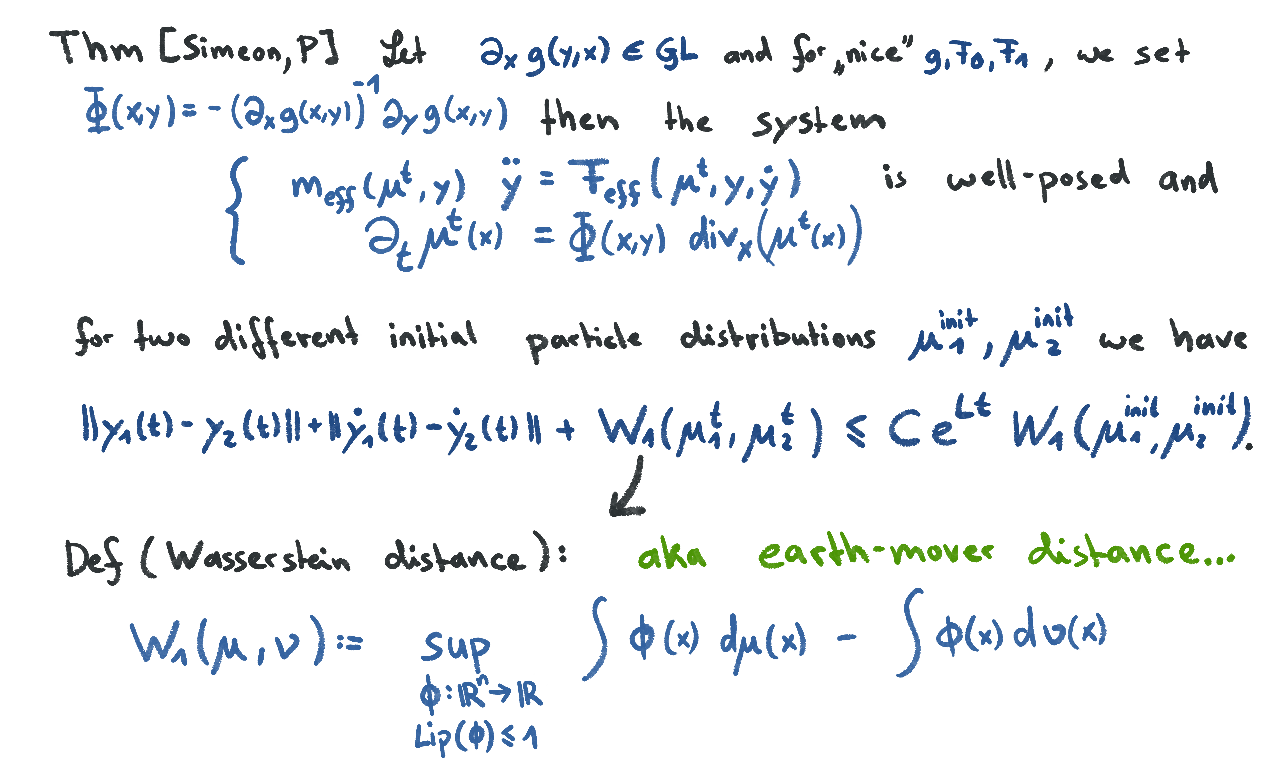 Thm [Simeon, P] Let ∂ₓ g(y,x) ∈ GL and for „nice" g, F₀, F₁, we set
Φ(x,y) = - (∂ₓg(x,y))⁻¹ ∂ᵧ g(x,y) then the system
{ m_eff(μᵗ, y) ÿ = F_eff(μᵗ, y, ẏ) is well-posed and
∂ₜ μᵗ(x) = Φ(x,y) divₓ(μᵗ(x))
for two different initial particle distributions μ₁^init, μ₂^init we have
||y₁(t) - y₂(t)|| + ||ẏ₁(t) - ẏ₂(t)|| + W₁(μ₁ᵗ, μ₂ᵗ) ⩽ C e^{Lt} W₁(μ₁^init, μ₂^init).
Def (Wasserstein distance): aka earth-mover distance...
W₁(μ, ν) := sup ∫ ϕ(x) dμ(x) - ∫ ϕ(x) dν(x)
ϕ: ℝⁿ → ℝ
Lip(ϕ) ⩽ 1